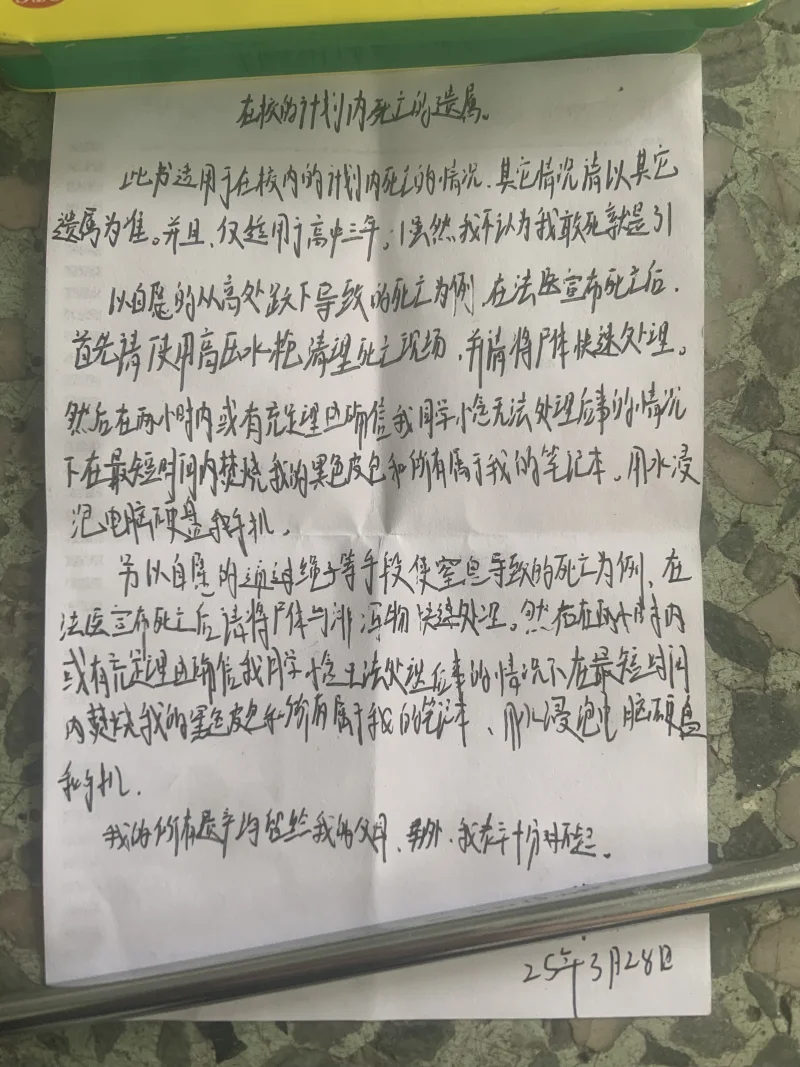 在校的计划内死亡的遗属。
此书适用于在校内的计划内死亡的情况，其它情况请以其它
遗属为准。并且，仅适用于高中三年。(虽然我不认为我敢死就是了)
以自愿的从高处跌下导致的死亡为例，在法医宣布死亡后，
首先请使用高压水枪清理死亡现场，并请将尸体快速处理。
然后在两小时内或有充足理由确信我同学 无法处理后事的情况
下在最短时间内焚烧我的黑色皮包和所有属于我的笔记本。用水浸
泡电脑硬盘和手机。
另以自愿的通过绳子等手段使窒息导致的死亡为例，在
法医宣布死亡后请将尸体与排泻物快速处理。然后在两小时内
或有充足理由确信我同学 无法处理后事的情况下在最短时间
内焚烧我的黑色皮包和所有属于我的笔记本、用水浸泡电脑硬盘
和手机。
我的所有遗产均留给我的父母，另外，我 十分对不起。
25年3月28日